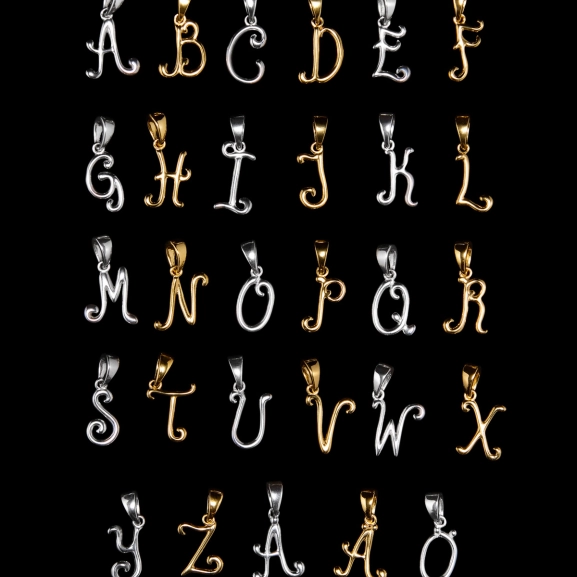 A B C D E F
G H I J K L
M N O P Q R
S T U V W X
Y Z Å Ä Ö